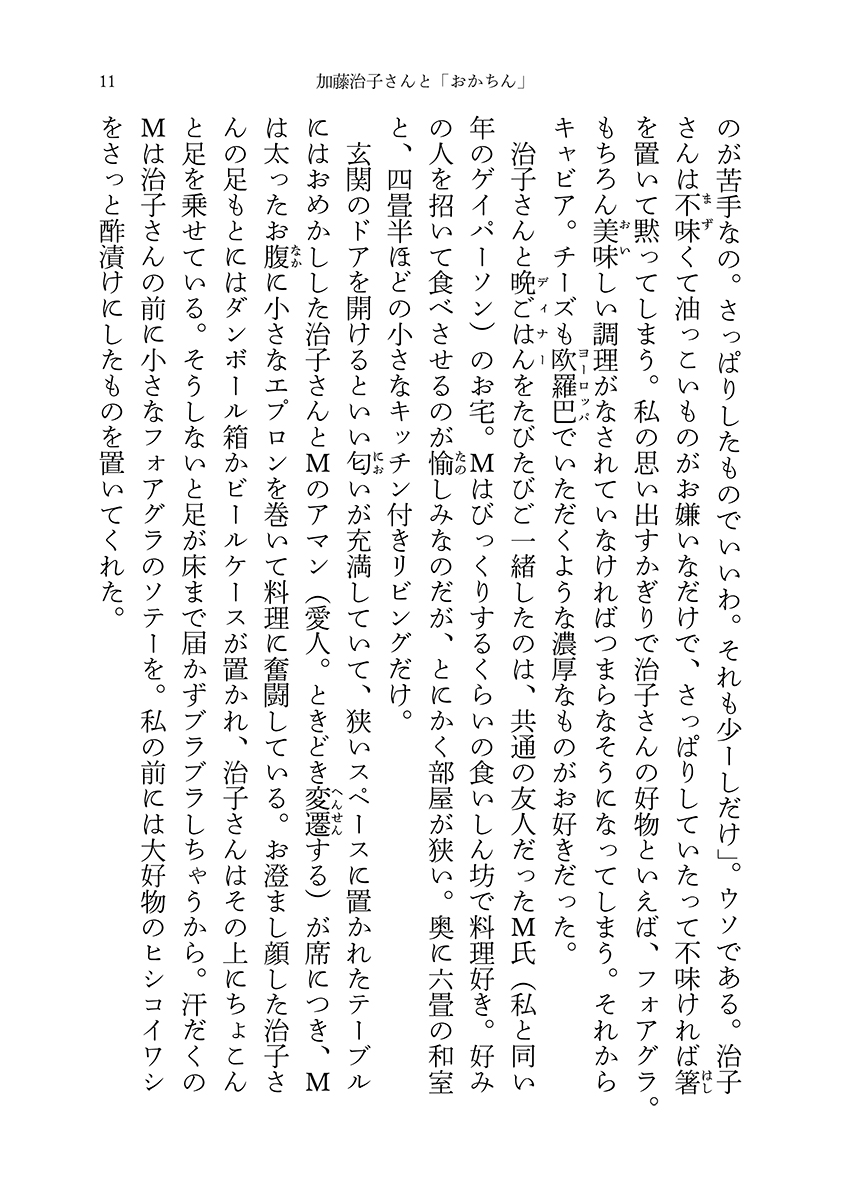 11
加藤治子さんと「おかちん」
のが苦手なの。さっぱりしたものでいいわ。それも少ーしだけ」。ウソである。治子
さんは不味くて油っこいものがお嫌いなだけで、さっぱりしていたって不味ければ箸
を置いて黙ってしまう。私の思い出すかぎりで治子さんの好物といえば、フォアグラ。
もちろん美味しい調理がなされていなければつまらなそうになってしまう。それから
キャビア。チーズも欧羅巴でいただくような濃厚なものがお好きだった。
治子さんと晩ごはんをたびたびご一緒したのは、共通の友人だったM氏（私と同い
年のゲイパーソン）のお宅。Mはびっくりするくらいの食いしん坊で料理好き。好み
の人を招いて食べさせるのが愉しみなのだが、とにかく部屋が狭い。奥に六畳の和室
と、四畳半ほどの小さなキッチン付きリビングだけ。
玄関のドアを開けるといい匂いが充満していて、狭いスペースに置かれたテーブル
にはおめかしした治子さんとMのアマン（愛人。ときどき変遷する）が席につき、M
は太ったお腹に小さなエプロンを巻いて料理に奮闘している。お澄まし顔した治子さ
んの足もとにはダンボール箱かビールケースが置かれ、治子さんはその上にちょこん
と足を乗せている。そうしないと足が床まで届かずブラブラしちゃうから。汗だくの
Mは治子さんの前に小さなフォアグラのソテーを。私の前には大好物のヒシコイワシ
をさっと酢漬けにしたものを置いてくれた。